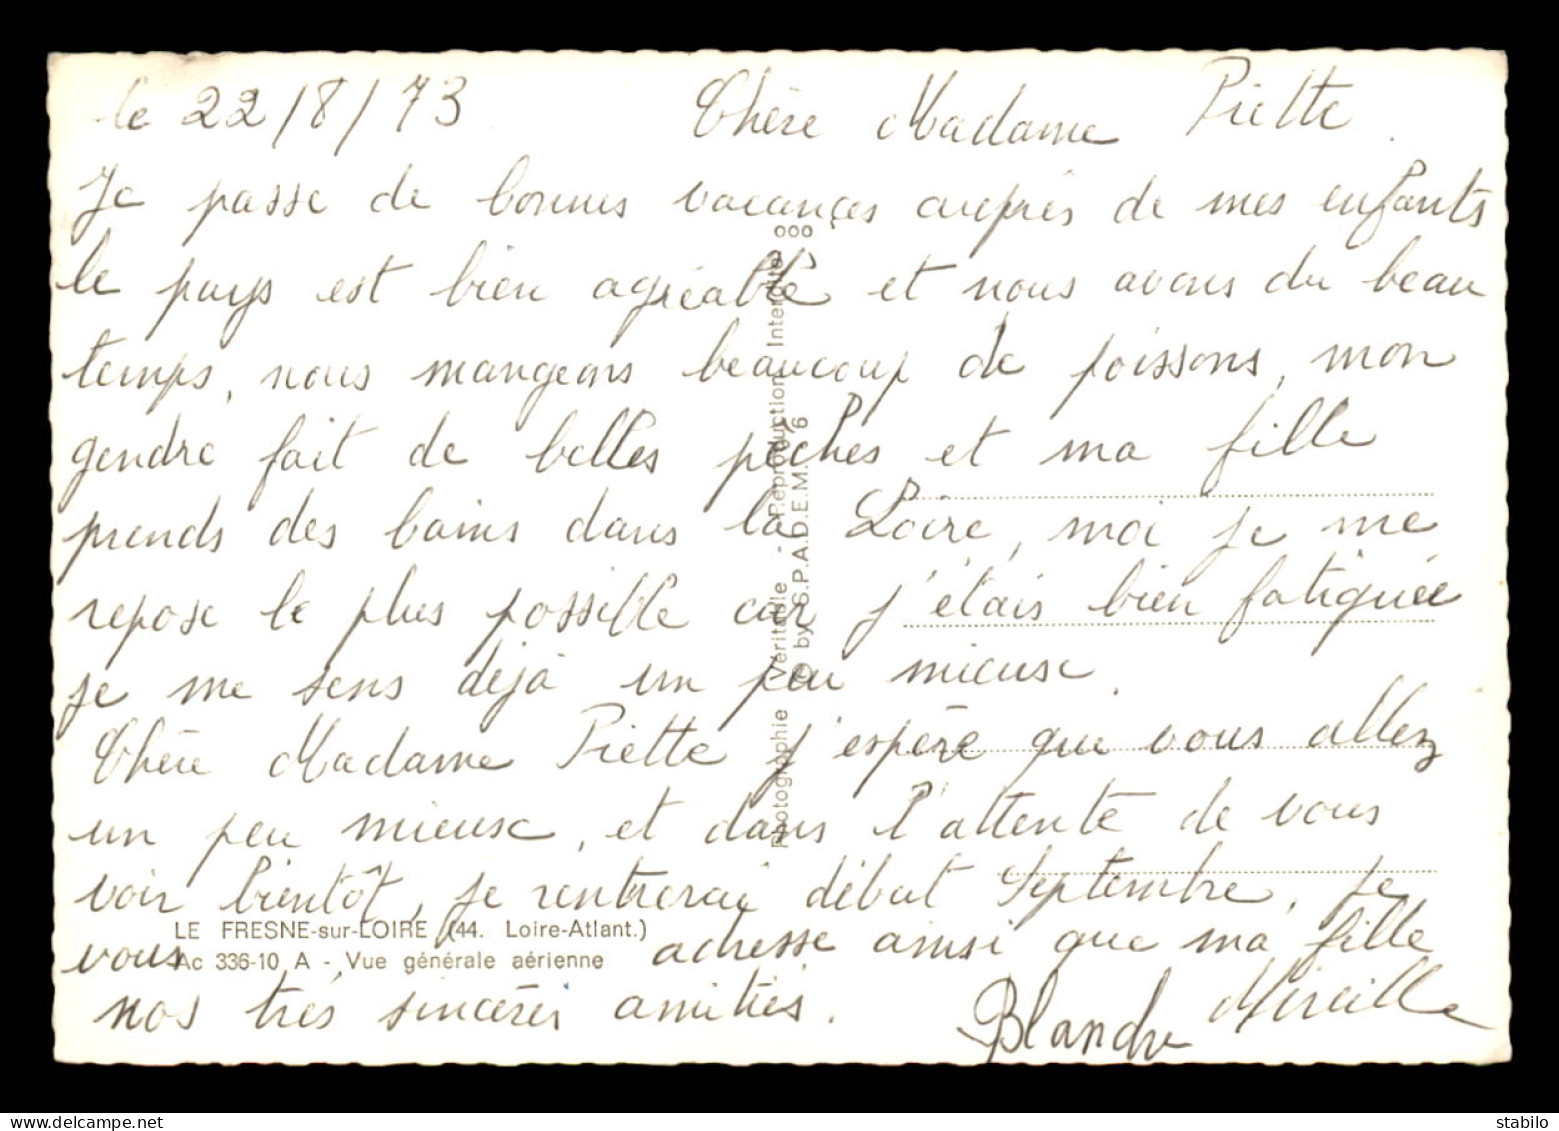 le 22/8/73 Chère Madame Piette.
Je passe de bonnes vacances auprès de mes enfants
le pays est bien agréable et nous avons du beau
temps, nous mangeons beaucoup de poissons, mon
gendre fait de belles pêches et ma fille
prends des bains dans la Loire, moi je me
repose le plus possible car j'étais bien fatiguée
je me sens déjà un peu mieux.
Chère Madame Piette j'espère que vous allez
un peu mieux, et dans l'attente de vous
voir bientôt, je rentrerai début Septembre, je
vous adresse ainsi que ma fille Mireille
nos très sincères amitiés.
Blandre
LE FRESNE-sur-LOIRE (44. Loire-Atlant.)
Ac 336-10 A - Vue générale aérienne
Photographie Véritable - Reproduction Interdite
© by S.P.A.D.E.M. 1976
ooo
stabilo